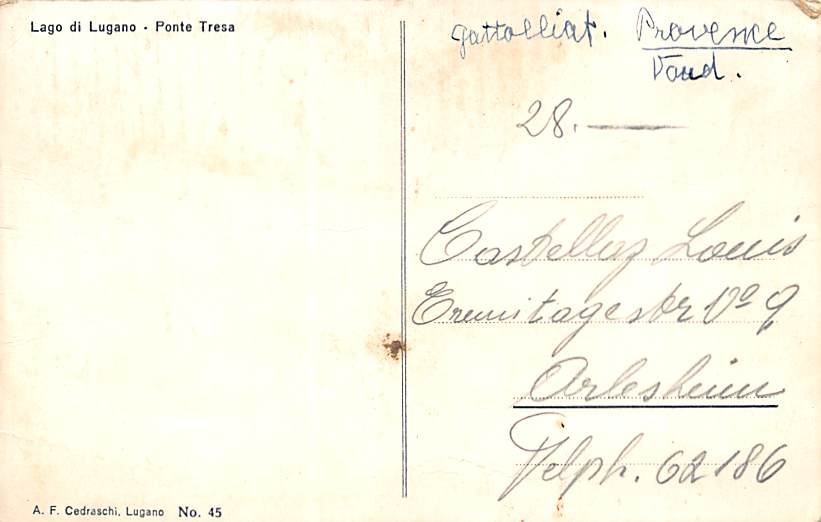 Lago di Lugano - Ponte Tresa
gattolliat. Provence
Vaud.
28.—
Castellaz Louis
Ermitagestr No 9
Arlesheim
Telph. 62186
A. F. Cedraschi, Lugano No. 45